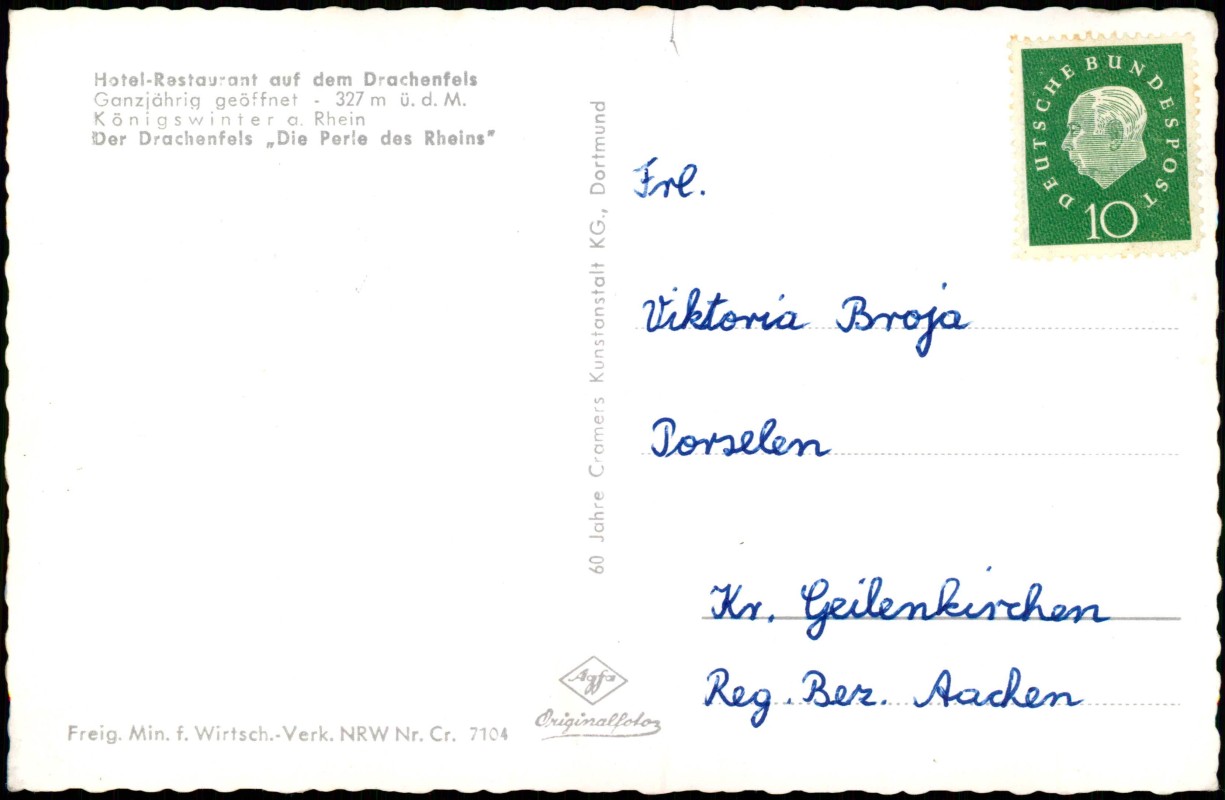 Hotel-Restaurant auf dem Drachenfels
Ganzjährig geöffnet - 327 m ü. d. M.
Königswinter a. Rhein
Der Drachenfels „Die Perle des Rheins"
60 Jahre Cramers Kunstanstalt KG., Dortmund
DEUTSCHE BUNDESPOST
10
Frl.
Viktoria Broja
Porselen
Kr. Geilenkirchen
Reg. Bez. Aachen
Agfa
Originalfoto
Freig. Min. f. Wirtsch.-Verk. NRW Nr. Cr. 7104